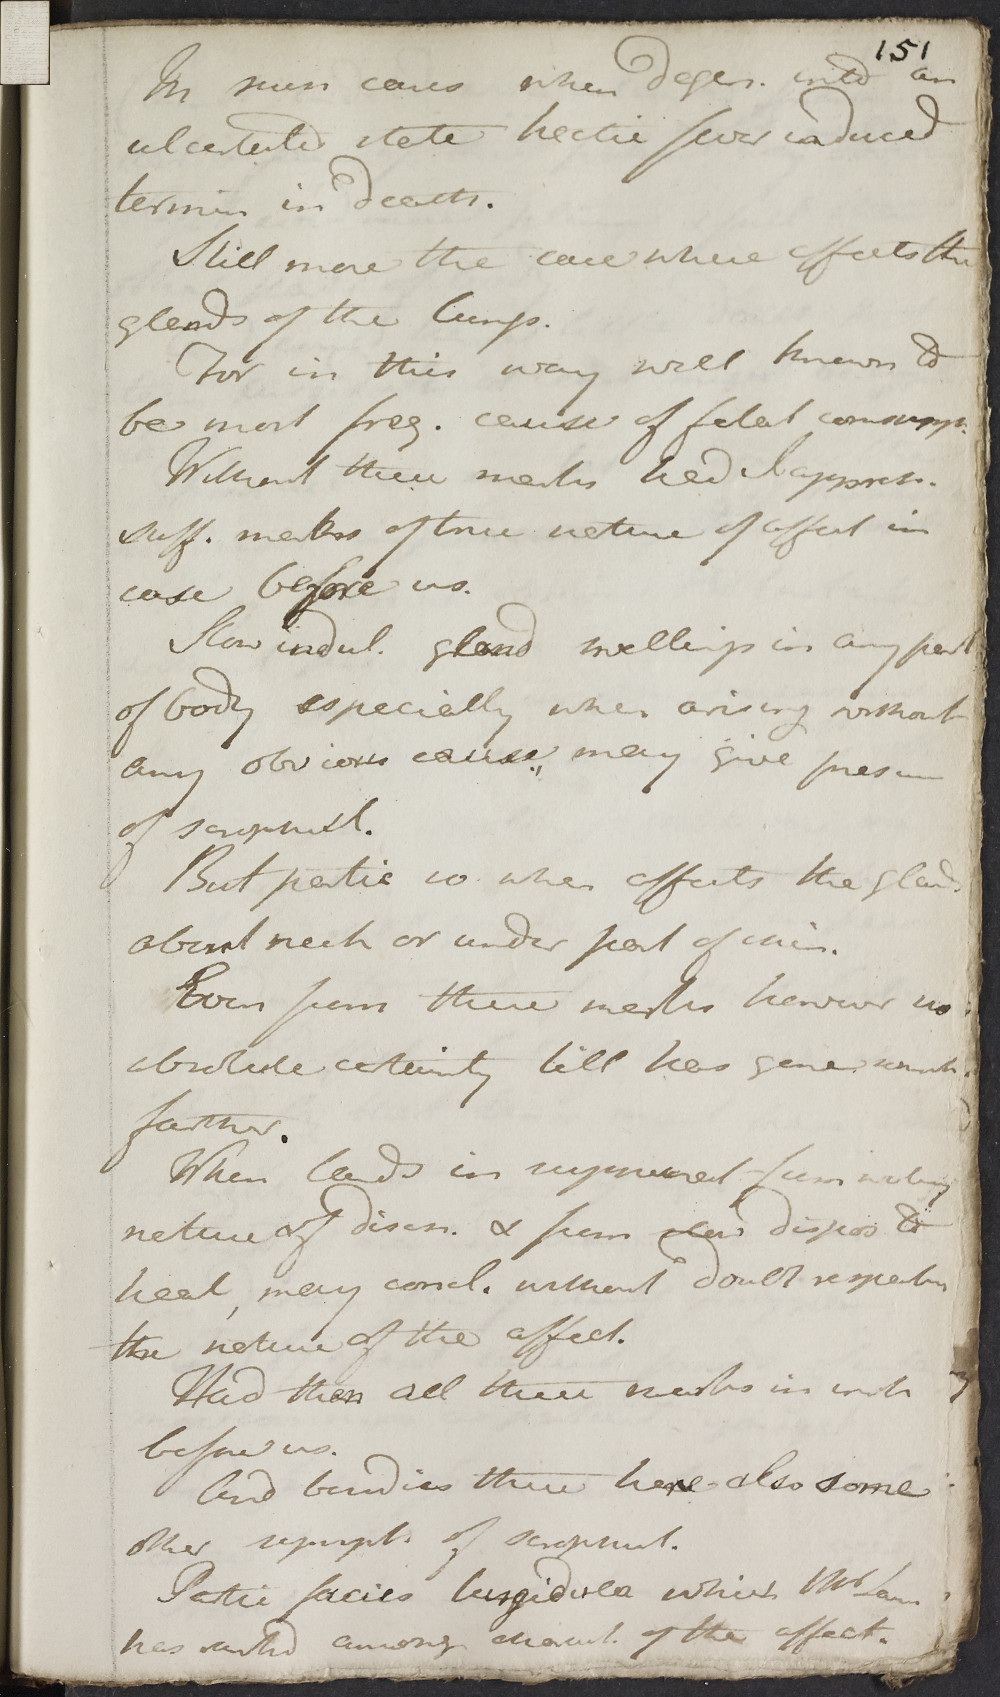 151
In such cases when degen. into an
ulcerated state hectic fever induced
termin in death.
Still more the case where affects the
glands of the lungs.
For in this way well known to
be most freq. cause of fatal consump.
Without these marks had I appreh.
suff. marks of true nature of affect in
case before us.
Slow indul. gland swellings in any part
of body especially when arising without
any obvious cause, may give presum
of scrophul.
But partic so when affects the glands
about neck or under part of chin.
Even from these marks however no
absolute certainty till has gone much
farther.
When lands in suppurat from
nature of disch. & from slow dispos to
heal, may concl. without doubt respecting
the nature of the affect.
Had then all these marks in
before us.
And besides these here also some
other sympt. of scrophul.
Partic facies turgidula which Mr
has ranked among charact. of the affect.